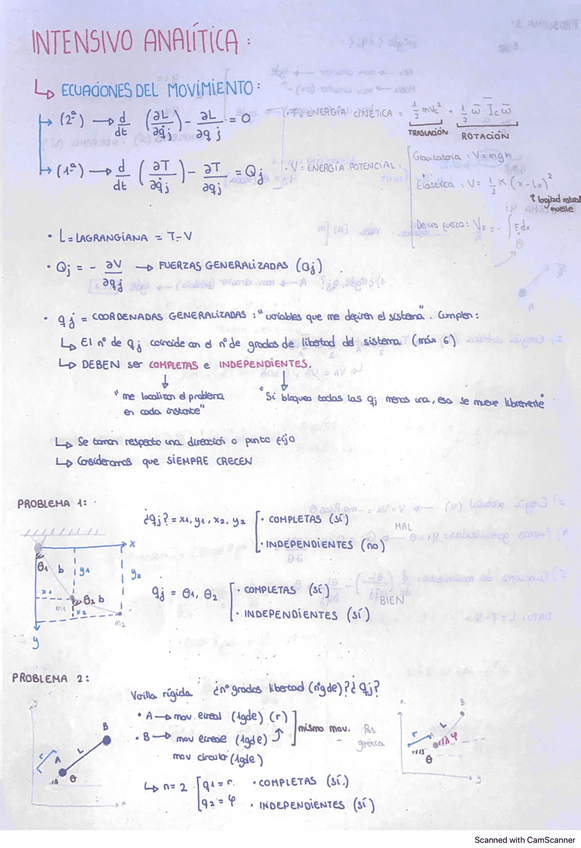 INTENSIVO ANALÍTICA:
↳ ECUACIONES DEL MOVIMIENTO:
→ (2ª) → d/dt (∂L/∂q̇j) - ∂L/∂qj = 0
→ (1ª) → d/dt (∂T/∂q̇j) - ∂T/∂qj = Qj
· T = ENERGÍA CINÉTICA = 1/2 mvc² + 1/2 ω̄ Īc ω̄
TRASLACIÓN ROTACIÓN
· V = ENERGÍA POTENCIAL:
Gravitatoria: V = mgh
Elástica: V = 1/2 K (x - L0)²
↑ longitud natural muelle
De una fuerza: VF = - ∫ F dx
· L = LAGRANGIANA = T-V
· Qj = - ∂V/∂qj → FUERZAS GENERALIZADAS (Qj)
· qj = COORDENADAS GENERALIZADAS: "variables que me definen el sistema". Cumplen:
↳ El nº de qj coincide con el nº de grados de libertad del sistema (máx 6)
↳ DEBEN ser COMPLETAS e INDEPENDIENTES.
"me localizan el problema en cada instante"
"Si bloqueo todas las qj menos una, esa se mueve libremente"
↳ Se toman respecto una dirección o punto fijo
↳ Consideramos que SIEMPRE CRECEN
PROBLEMA 1:
¿qj? = x1, y1, x2, y2
· COMPLETAS (sí)
· INDEPENDIENTES (no)
MAL
qj = θ1, θ2
· COMPLETAS (sí)
· INDEPENDIENTES (sí)
BIEN
x
θ1 b y1 y2
x1 m1 θ2 b
x2 m2
y
PROBLEMA 2:
Varilla rígida ¿nº grados libertad (nºgde)? ¿qj?
· A → mov lineal (1gde) (r)
· B → mov lineal (1gde)
mov circular (1gde)
mismo mov.
↳ n = 2
q1 = r
q2 = φ
· COMPLETAS (sí)
· INDEPENDIENTES (sí)
y B L r A θ x
x B L r φ θ y
Scanned with CamScanner